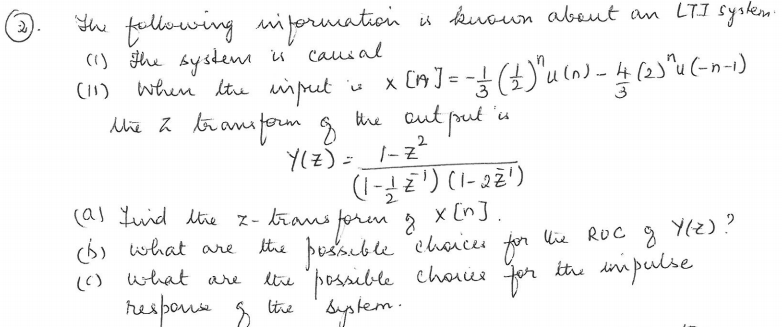 ②. The following information is known about an LTI system.
(i) The system is causal
(ii) When the input is x[n] = -1/3 (1/2)^n u(n) - 4/3 (2)^n u(-n-1)
the z transform of the output is
Y(z) = (1-z^2) / ((1-1/2 z^-1) (1-2z^-1))
(a) Find the z-transform of x[n].
(b) what are the possible choices for the ROC of Y(z)?
(c) what are the possible choices for the impulse
response of the system.